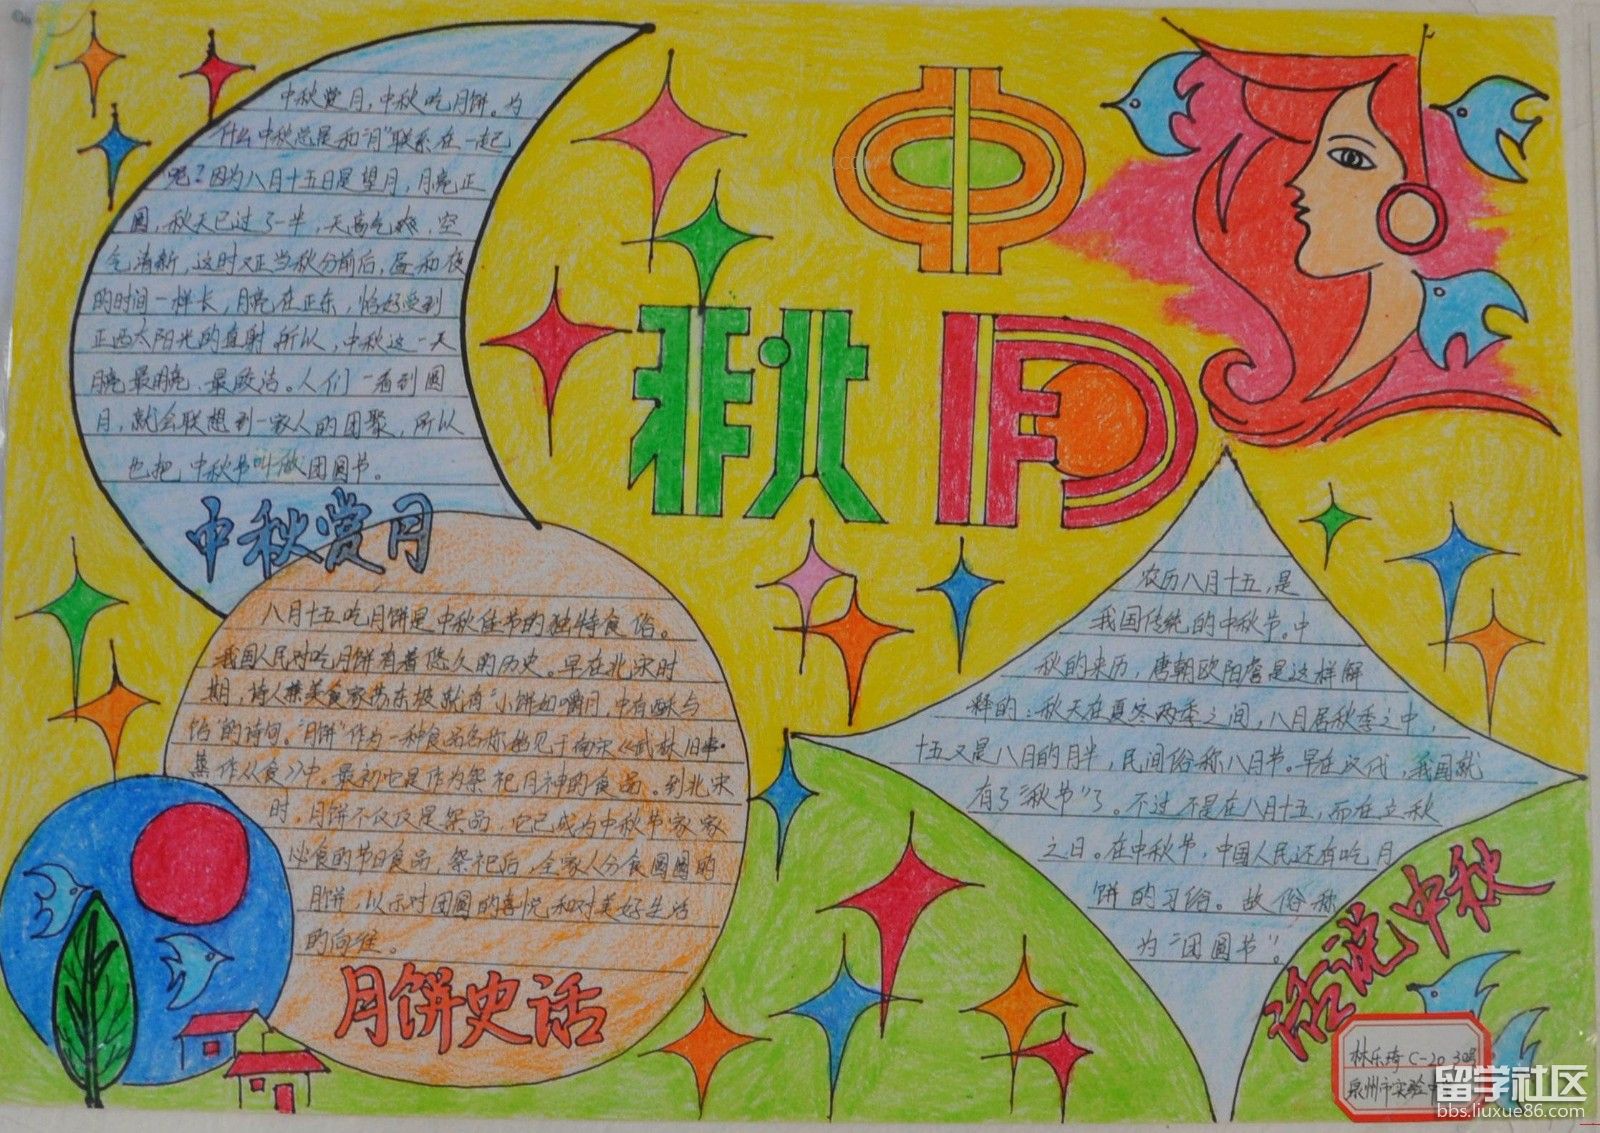 中秋月
中秋赏月，中秋吃月饼。为
什么中秋总是和“月”联系在一起
呢？因为八月十五日是望月，月亮正
圆，秋天已过了一半，天高气爽，空
气清新，这时又正当秋分前后，昼和夜
的时间一样长，月亮在正东，恰好受到
正西太阳光的直射，所以，中秋这一天
月亮最明亮、最皎洁。人们一看到圆
月，就会联想到一家人的团聚，所以
也把中秋节叫做团圆节。
中秋赏月
八月十五吃月饼是中秋佳节的独特食俗。
我国人民对吃月饼有着悠久的历史。早在北宋时
期，诗人兼美食家苏东坡就有“小饼如嚼月，中有酥与
饴”的诗句。“月饼”作为一种食品名称始见于南宋《武林旧事·
蒸作从食》中。最初它是作为祭祀月神的食品。到北宋
时，月饼不仅仅是祭品，它已成为中秋节家家
必食的节日食品，祭祀后，全家人分食圆圆的
月饼，以示对团圆的喜悦和对美好生活
的向往。
月饼史话
农历八月十五，是
我国传统的中秋节。中
秋的来历，唐朝欧阳詹是这样解
释的：秋天在夏冬两季之间，八月居秋季之中，
十五又是八月的月半，民间俗称八月节。早在汉代，我国就
有了“秋节”了。不过不是在八月十五，而在立秋
之日。在中秋节，中国人民还有吃月
饼的习俗。故俗称
为“团圆节”。
话说中秋
林乐琦 C-20 30号
泉州市实验中
留学社区
bbs.liuxue86.com